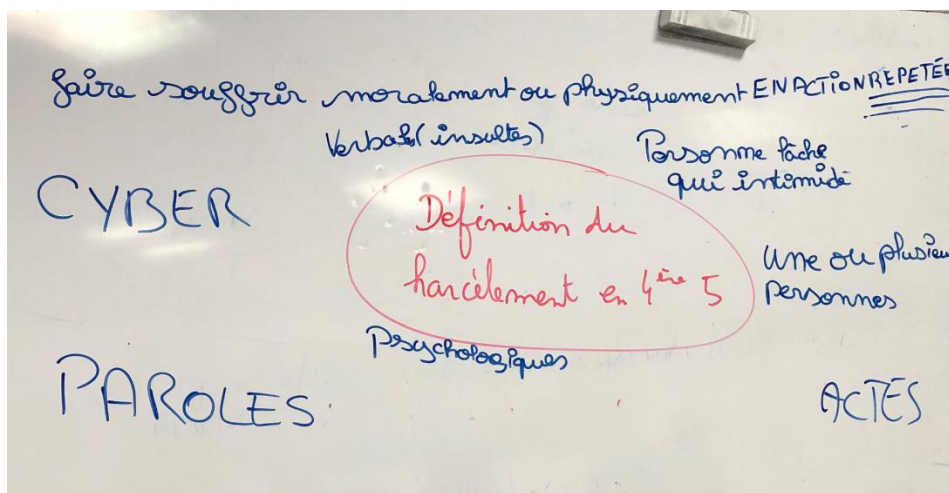 faire souffrir moralement ou physiquement EN ACTION REPETÉE
Verbal (insultes)
Personne lâche
qui intimide
CYBER
Définition du
harcèlement en 4ère 5
une ou plusieu
personnes
Psychologiques
PAROLES
ACTES